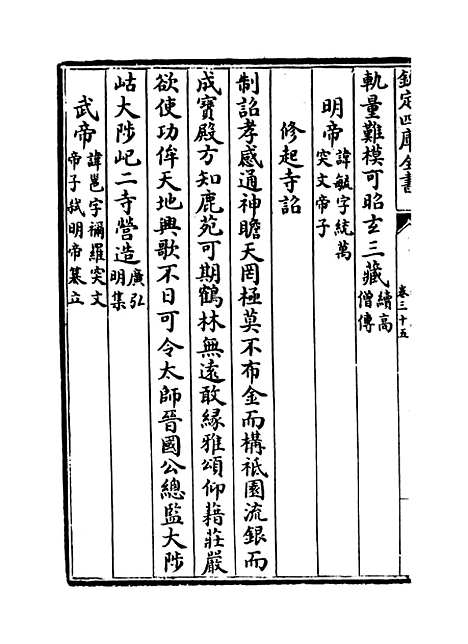 欽定四庫全書
卷三十五
軌量難模可昭玄三藏續高
僧傳
明帝諱毓字統萬
突文帝子
修起寺詔
制詔孝感通神瞻天罔極莫不布金而構祗園流銀而
成寶殿方知鹿苑可期鶴林無遠敢緣雅頌仰藉莊嚴
欲使功侔天地興歌不日可令太師晉國公總監大陟
岵大陟屺二寺營造廣弘
明集
武帝諱邕字禰羅突文
帝子弒明帝纂立